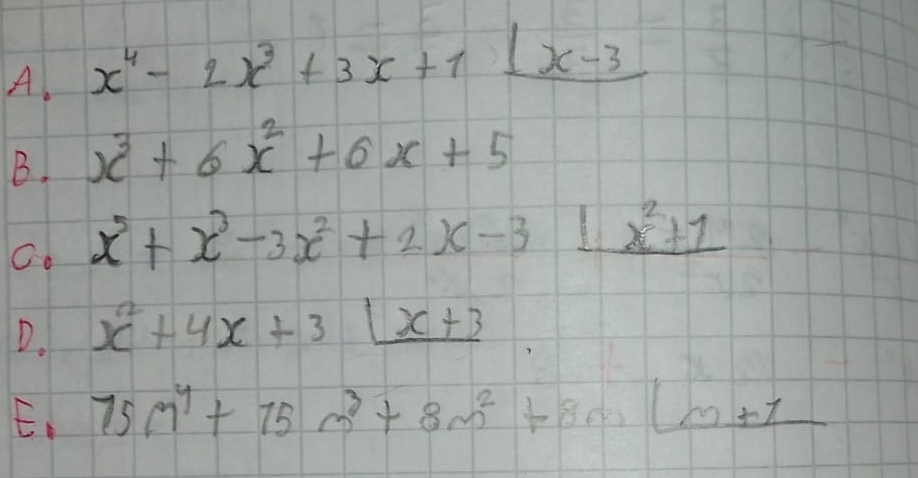 A. x⁴ - 2x³ + 3x + 1 ⌊x-3
B. x³ + 6x² + 6x + 5
C. x⁵ + x³ - 3x² + 2x - 3 ⌊x²+1
D. x² + 4x + 3 ⌊x+3
E. 15m⁴ + 15m³ + 8m² + 8m ⌊m+1